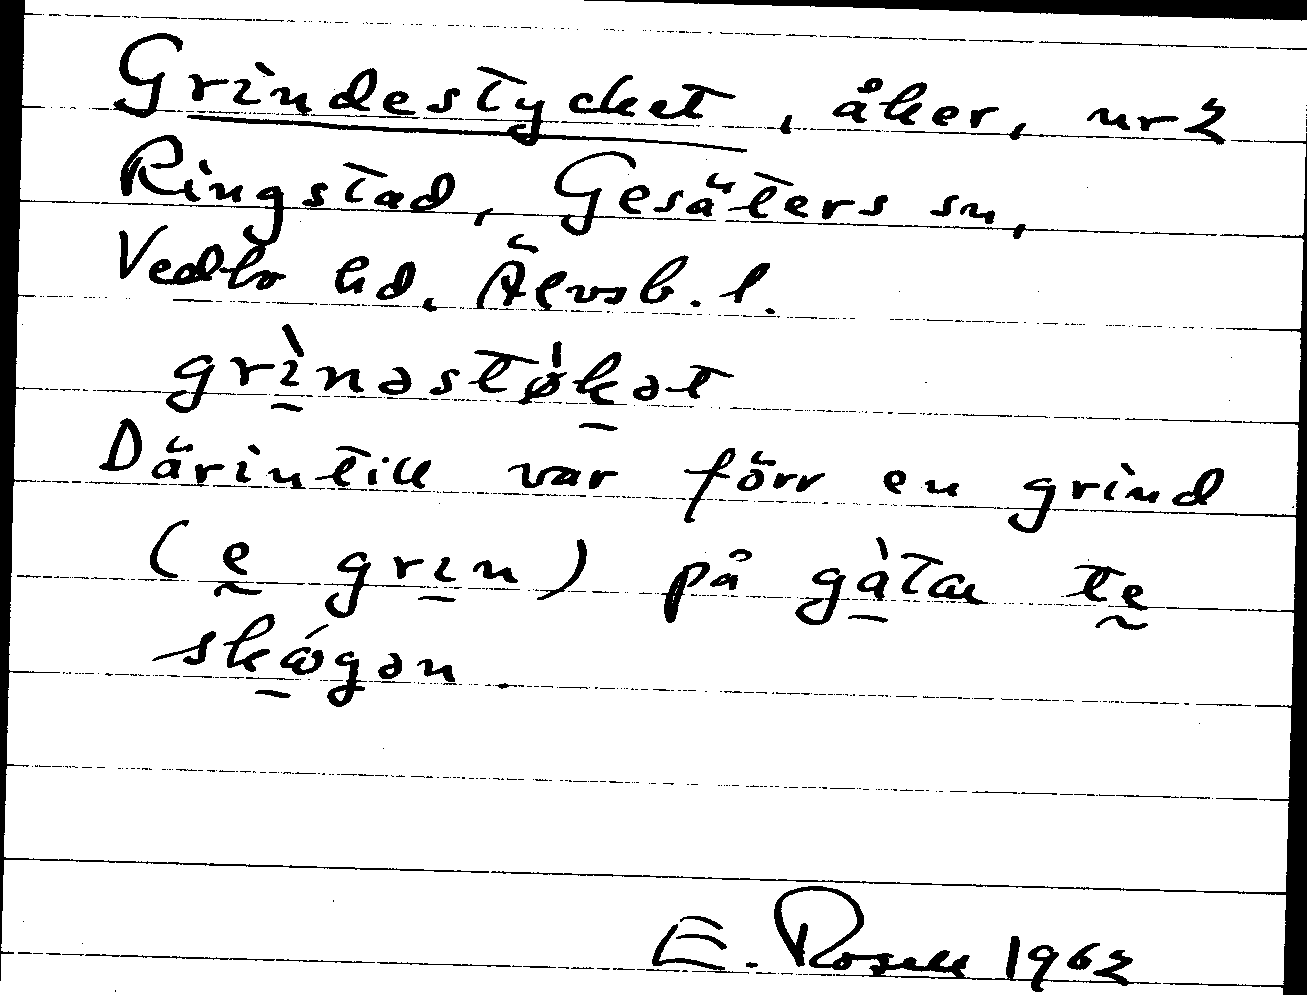 Grindestycket, åker, nr 2
Ringstad, Gesäters sn,
Vedbo hd, Älvsb. l.
grɩ̱̀nəstø̍ḵət
Därintill var förr en grind
(ḛ grɩ̱n) på gà̱tɑ tḛ
skǿ̱gən.
E. Rosell 1962